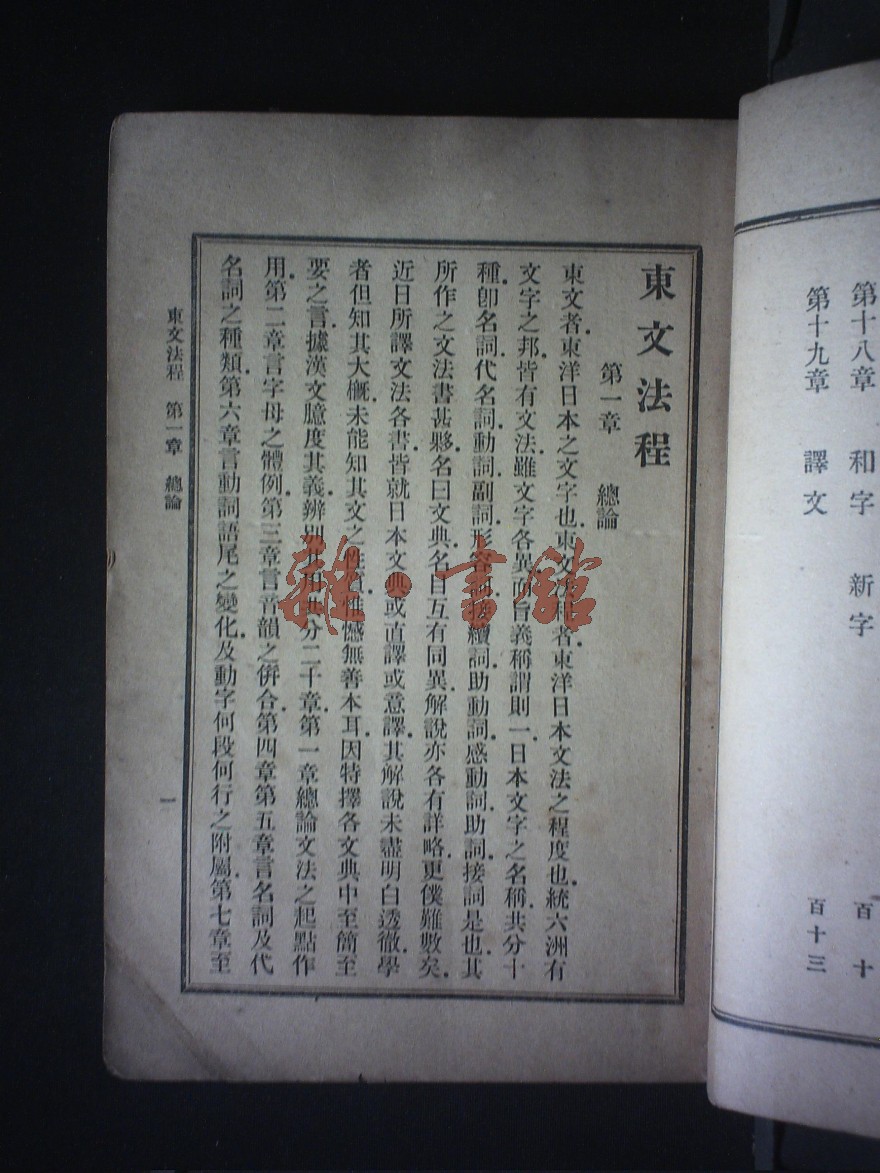 第十八章 和字 新字 百十
第十九章 譯文 百十三
東文法程
第一章 總論
東文者.東洋日本之文字也.東文法程者.東洋日本文法之程度也.統六洲有
文字之邦.皆有文法.雖文字各異.而旨義稱謂則一.日本文字之名稱.共分十
種.卽名詞.代名詞.動詞.副詞.形容詞.接續詞.助動詞.感動詞.助詞.接詞是也.其
所作之文法書甚夥.名曰文典.名目互有同異.解說亦各有詳略.更僕難數矣.
近日所譯文法各書.皆就日本文典.或直譯或意譯.其解說未盡明白透徹.學
者但知其大概.未能知其文之性質.惟憾無善本耳.因特擇各文典中至簡至
要之言.據漢文臆度其義.辨別其用.共分二十章.第一章總論文法之起點作
用.第二章言字母之體例.第三章言音韻之倂合.第四章第五章言名詞及代
名詞之種類.第六章言動詞語尾之變化.及動字何段何行之附屬.第七章至
東文法程 第一章 總論 一
雜·書館